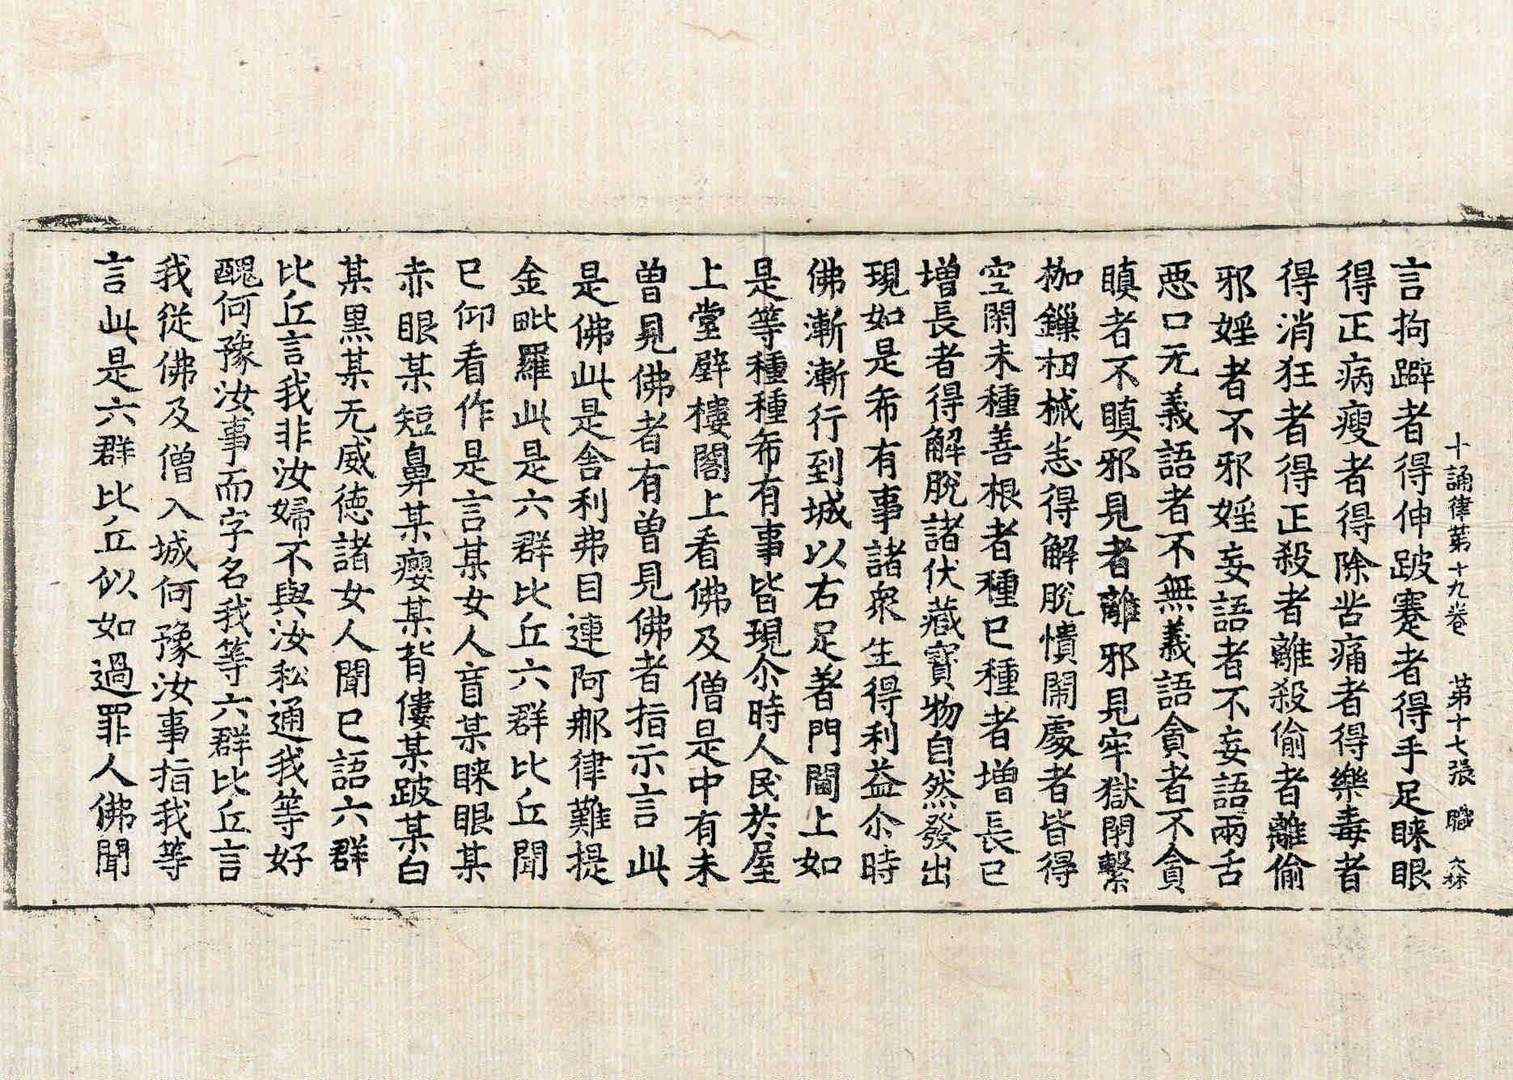 十誦律第十九卷　第十七張　職
言拘躃者得伸跛蹇者得手足睞眼
得正病瘦者得除苦痛者得樂毒者
得消狂者得正殺者離殺偷者離偷
邪婬者不邪婬妄語者不妄語兩舌
惡口无義語者不無義語貪者不貪
瞋者不瞋邪見者離邪見牢獄閉繫
枷鏁杻械悉得解脫憒閙處者皆得
空閑未種善根者種已種者增長已
增長者得解脫諸伏藏寶物自然發出
現如是希有事諸衆生得利益尒時
佛漸漸行到城以右足著門閫上如
是等種種希有事皆現尒時人民於屋
上堂壁樓閣上看佛及僧是中有未
曾見佛者有曾見佛者指示言此
是佛此是舍利弗目連阿那律難提
金毗羅此是六群比丘六群比丘聞
已仰看作是言某女人盲某睞眼某
赤眼某短鼻某癭某背僂某跛某白
某黑某无威德諸女人聞已語六群
比丘言我非汝婦不與汝私通我等好
醜何豫汝事而字名我等六群比丘言
我從佛及僧入城何豫汝事指我等
言此是六群比丘似如過罪人佛聞